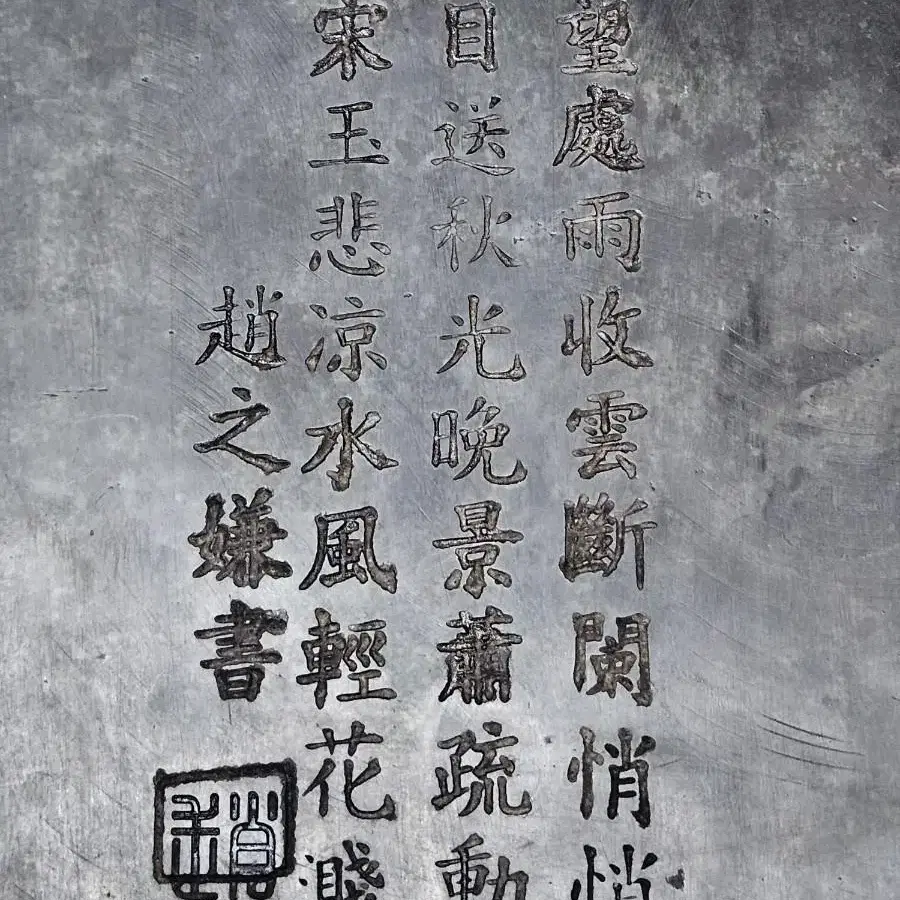 望處雨收雲斷闌悄悄
目送秋光晚景蕭疏動
宋玉悲涼水風輕花濺
趙之嫌書